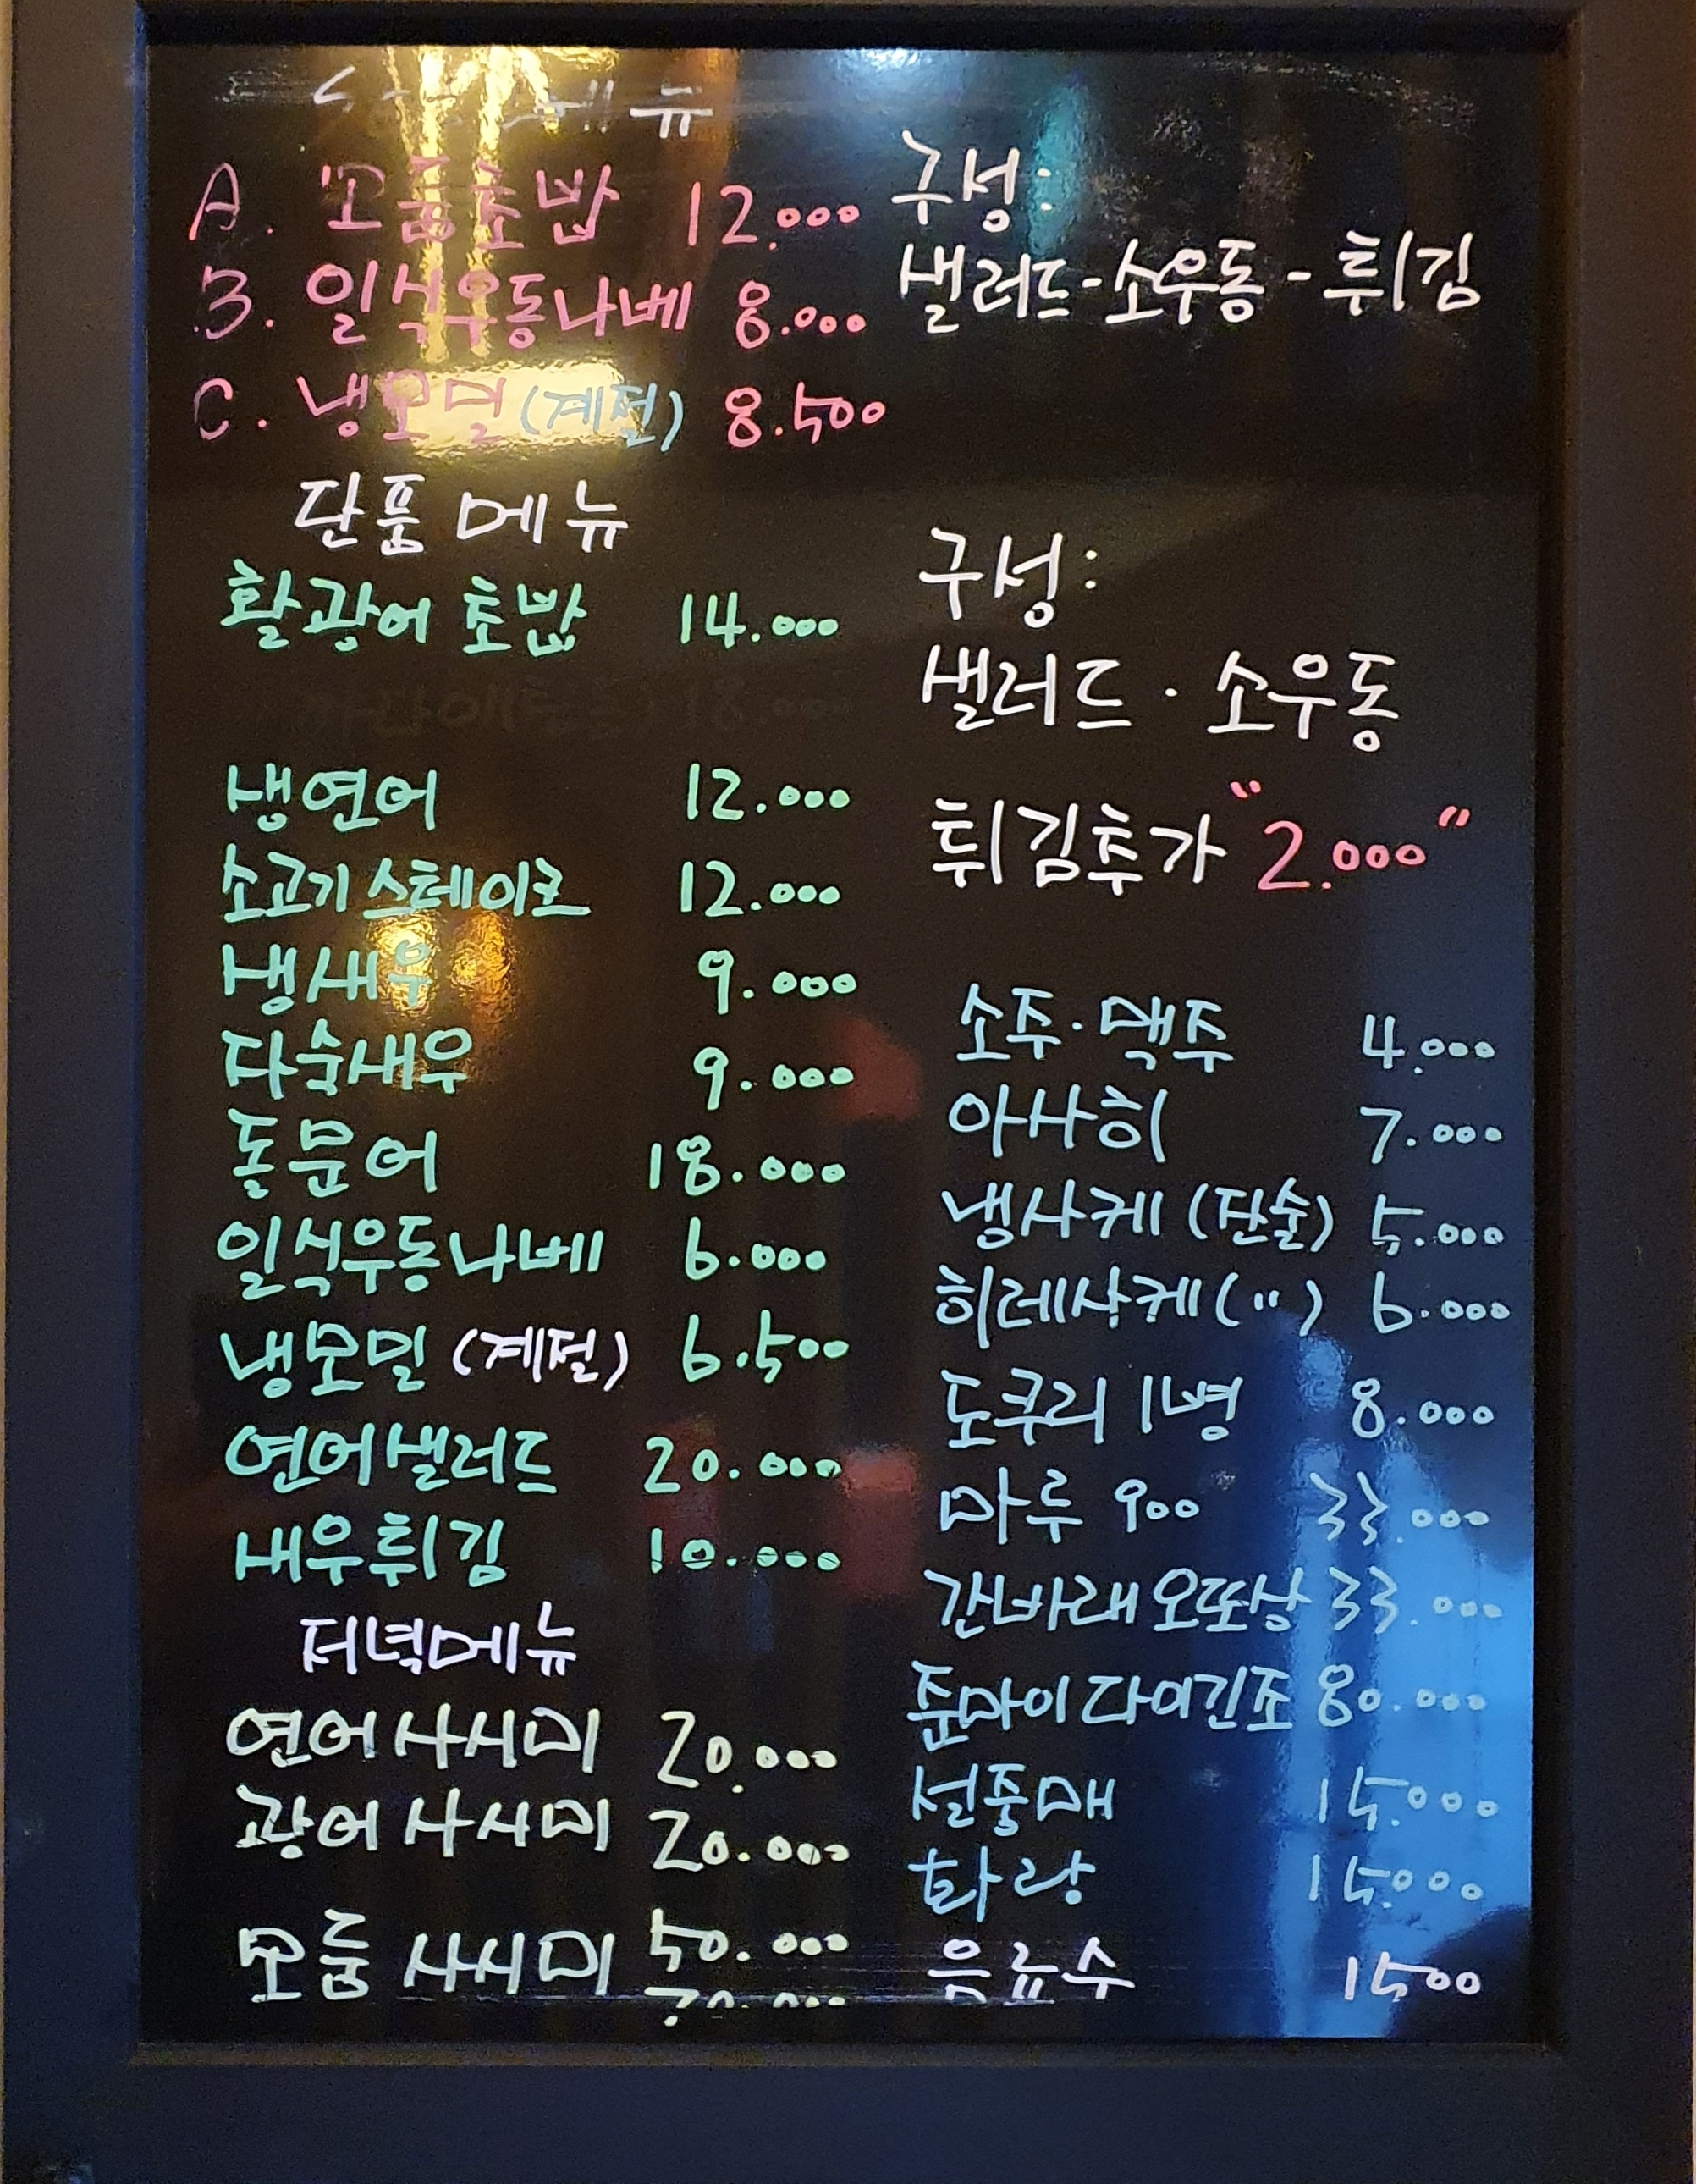 메뉴
A. 모듬초밥 12.000
B. 일식우동나베 8.000
C. 냉모밀(계절) 8.500
구성:
샐러드-소우동-튀김
단품메뉴
활광어 초밥 14.000
생연어 12.000
소고기스테이크 12.000
생새우 9.000
다숙새우 9.000
돌문어 18.000
일식우동나베 6.000
냉모밀 (계절) 6.500
연어샐러드 20.000
새우튀김 10.000
구성:
샐러드 · 소우동
튀김추가 "2.000"
저녁메뉴
연어사시미 20.000
광어사시미 20.000
모둠 사시미 50.000
소주·맥주 4.000
아사히 7.000
냉사케(잔술) 5.000
히레사케(") 6.000
도쿠리 1병 8.000
마루 900 33.000
간바레오또상 33.000
준마이다이긴조 80.000
설중매 15.000
화랑 15.000
음료수 1500